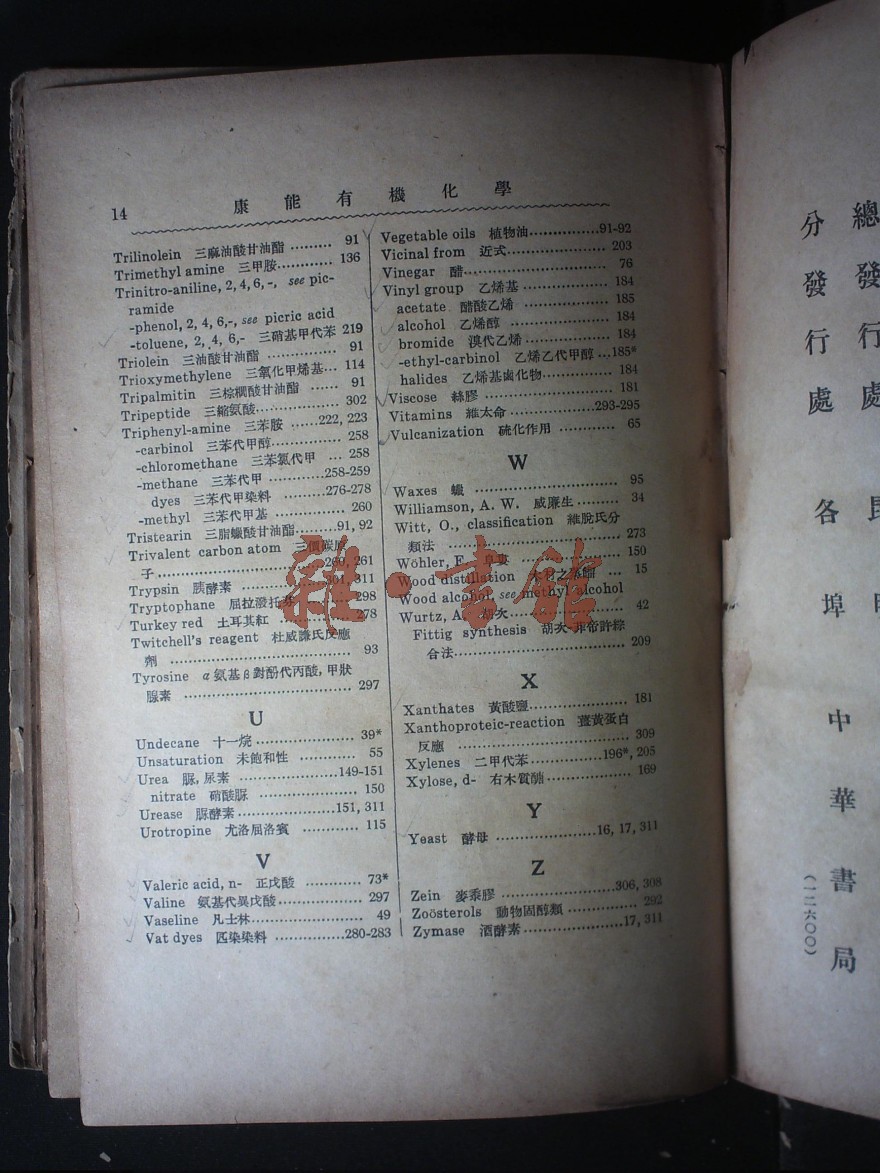 14
康能有機化學
Trilinolein 三麻油酸甘油酯 ......... 91
Trimethyl amine 三甲胺............ 136
Trinitro-aniline, 2, 4, 6,-, see pic-
ramide
-phenol, 2, 4, 6,-, see picric acid
-toluene, 2, 4, 6,- 三硝基甲代苯 219
Triolein 三油酸甘油酯 ............... 91
Trioxymethylene 三氧化甲烯基... 114
Tripalmitin 三棕櫚酸甘油酯 ...... 91
Tripeptide 三縮氨酸.................. 302
Triphenyl-amine 三苯胺 ......222, 223
-carbinol 三苯代甲醇............... 258
-chloromethane 三苯氯代甲 ... 258
-methane 三苯代甲 ............258-259
dyes 三苯代甲染料 .........276-278
-methyl 三苯代甲基 ............... 260
Tristearin 三脂蠟酸甘油酯.........91, 92
Trivalent carbon atom 三價碳原
子..............................260, 261
Trypsin 胰酵素 ..................301, 311
Tryptophane 屈拉潑托 298
Turkey red 土耳其紅 ............... 278
Twitchell's reagent 杜威謙氏反應
劑 .................................... 93
Tyrosine α氨基β對酚代丙酸,甲狀
腺素 ................................. 297
U
Undecane 十一烷 .................. 39*
Unsaturation 未飽和性 ............ 55
Urea 脲,尿素 ..................149-151
nitrate 硝酸脲 .................. 150
Urease 脲酵素..................151, 311
Urotropine 尤洛屈洛賓 ............ 115
V
Valeric acid, n- 正戊酸 ............ 73*
Valine 氨基代異戊酸............... 297
Vaseline 凡士林..................... 49
Vat dyes 匹染染料 ...............280-283
Vegetable oils 植物油...............91-92
Vicinal from 近式..................... 203
Vinegar 醋.............................. 76
Vinyl group 乙烯基 .................. 184
acetate 醋酸乙烯 .................. 185
alcohol 乙烯醇 ..................... 184
bromide 溴代乙烯.................. 184
-ethyl-carbinol 乙烯乙代甲醇 ...185*
halides 乙烯基鹵化物............... 184
Viscose 絲膠 ........................... 181
Vitamins 維太命..................293-295
Vulcanization 硫化作用 ............ 65
W
Waxes 蠟 .............................. 95
Williamson, A. W. 威廉生......... 34
Witt, O., classification 維脫氏分
類法 ................................. 273
Wöhler, F. ..................... 150
Wood distillation 木材之蒸餾 ... 15
Wood alcohol, see methyl alcohol
Wurtz, A. 胡次 ..................... 42
Fittig synthesis 胡次-非帝許綜
合法................................. 209
X
Xanthates 黃酸鹽..................... 181
Xanthoproteic-reaction 薑黃蛋白
反應 ................................. 309
Xylenes 二甲代苯...............196*, 205
Xylose, d- 右木質醣 ............... 169
Y
Yeast 酵母 .....................16, 17, 311
Z
Zein 麥黍膠 .....................306, 308
Zoösterols 動物固醇類 ............ 292
Zymase 酒酵素 ..................17, 311
雜·書館
總發行處
分發行處 各埠中華書局
(一二六〇〇)